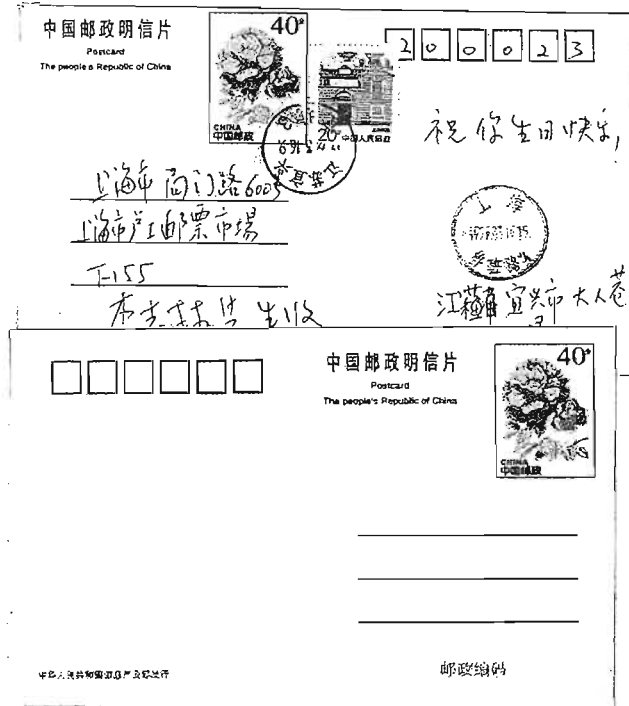 中国邮政明信片
Postcard
The people's Republic of China
40
CHINA
中国邮政
20
中国人民邮政
200023
祝你生日快乐,
江苏宜兴
上海市局门路600号
上海市卢工邮票市場
T-155
生收
上海
江蘇省宜兴市大人巷
中国邮政明信片
Postcard
The people's Republic of China
40
CHINA
中国邮政
邮政编码